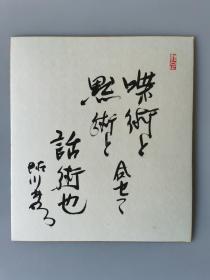 喋術と
黙術と
合せて
話術也